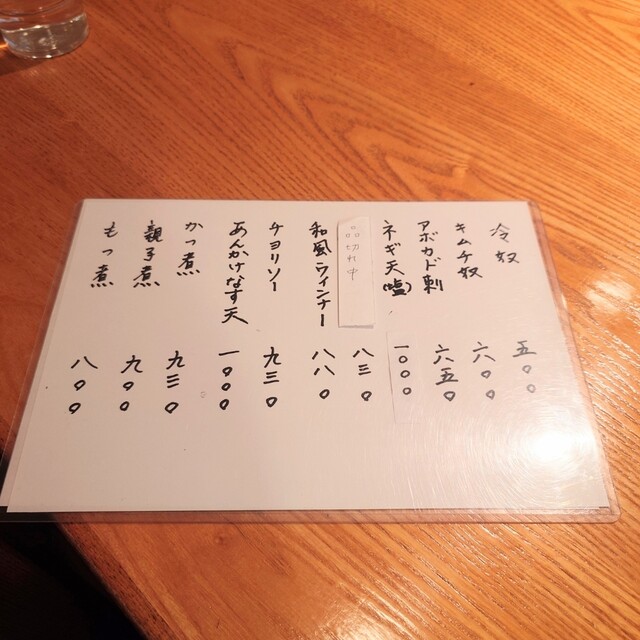 冷奴 五〇〇
キムチ奴 六〇〇
アボカド刺 六五〇
ネギ天(塩) 一〇〇〇
品切れ中 八三〇
和風ウィンナー 八八〇
チョリソー 九三〇
あんかけなす天 一〇〇〇
かつ煮 九三〇
親子煮 九〇〇
もつ煮 八〇〇